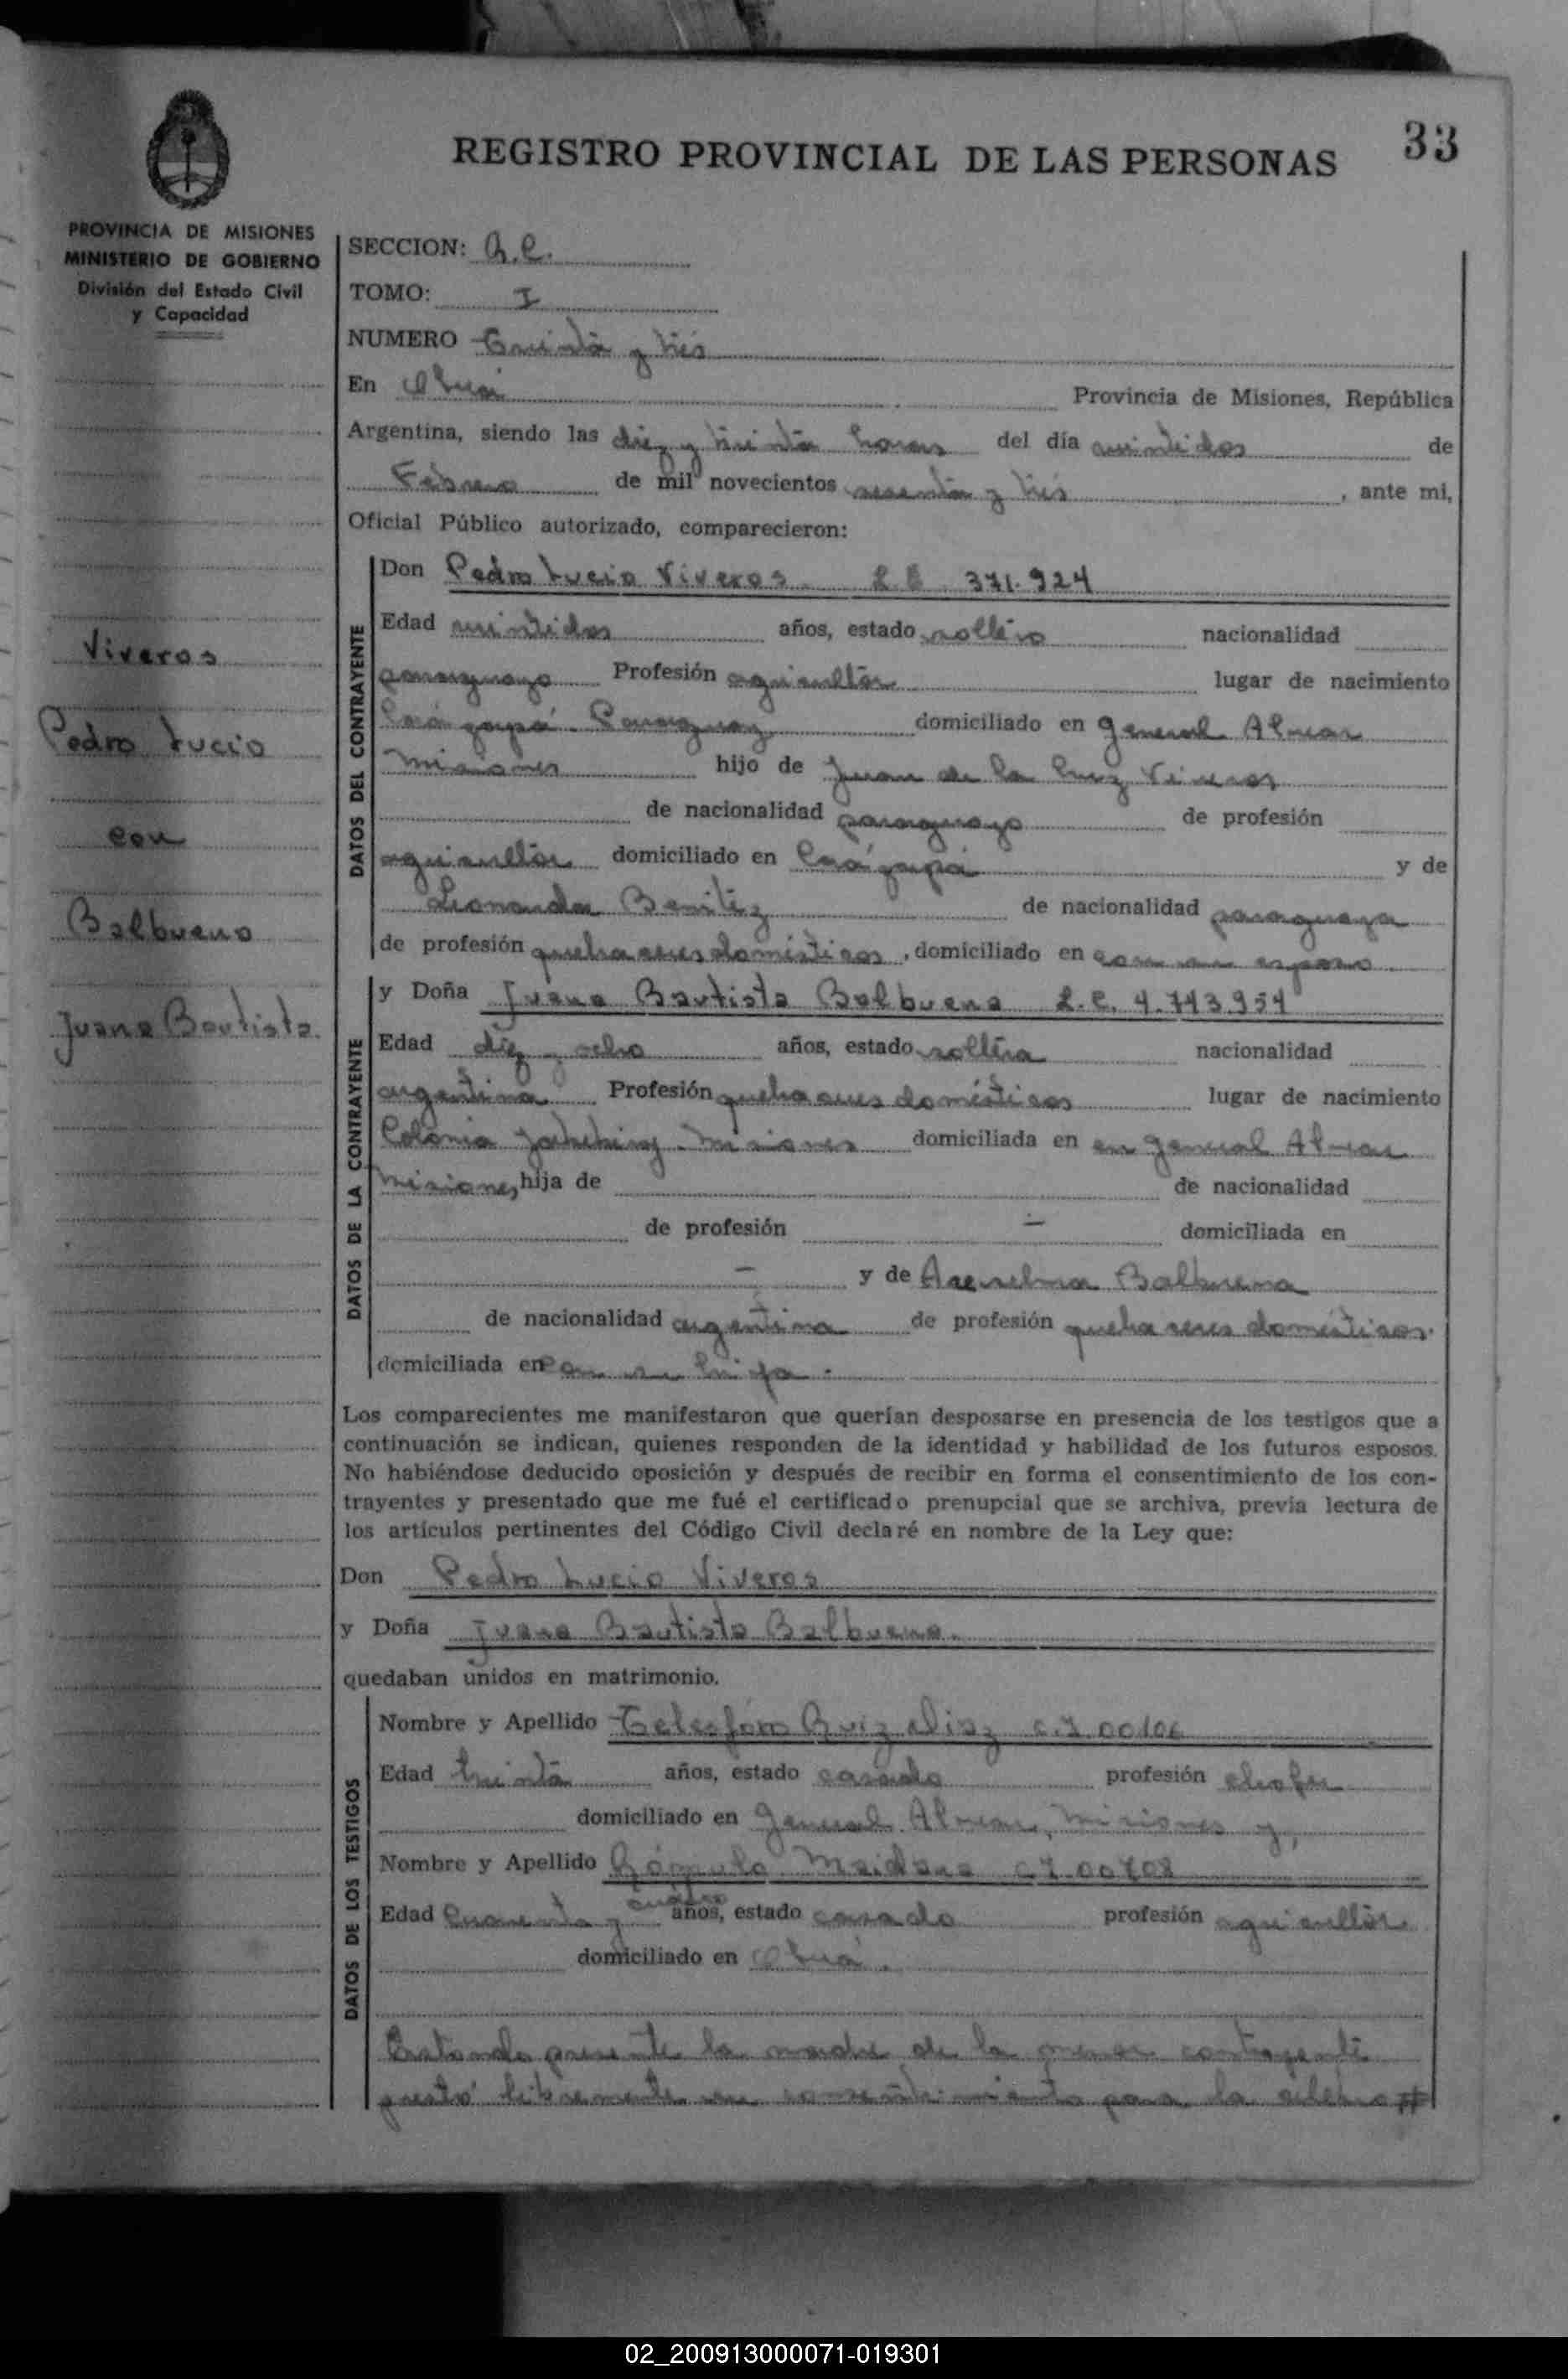 REGISTRO PROVINCIAL DE LAS PERSONAS
33
PROVINCIA DE MISIONES
MINISTERIO DE GOBIERNO
División del Estado Civil
y Capacidad
Viveros
Pedro Lucio
con
Balbuena
Juana Bautista
SECCION:
TOMO: I
NUMERO Treinta y tres
En Oberá Provincia de Misiones, República
Argentina, siendo las diez y treinta horas del día veintidos de
Febrero de mil novecientos sesenta y tres, ante mi,
Oficial Público autorizado, comparecieron:
DATOS DEL CONTRAYENTE
Don Pedro Lucio Viveros 371.924
Edad veintidos años, estado soltero nacionalidad
paraguayo Profesión agricultor lugar de nacimiento
Caá zapá Paraguay domiciliado en General Alvear
Misiones hijo de Juan de la Cruz Viveros
de nacionalidad paraguayo de profesión
agricultor domiciliado en Caá zapá y de
Leonarda Benitez de nacionalidad paraguaya
de profesión quehaceres domésticos, domiciliado en con su esposo
DATOS DE LA CONTRAYENTE
y Doña Juana Bautista Balbuena L.C. 4.743.954
Edad diez y ocho años, estado soltera nacionalidad
argentina Profesión quehaceres domésticos lugar de nacimiento
Colonia Misiones domiciliada en en General Alvear
Misiones, hija de de nacionalidad
de profesión — domiciliada en
— y de Balbuena
de nacionalidad argentina de profesión quehaceres domésticos.
domiciliada en con su hija.
Los comparecientes me manifestaron que querían desposarse en presencia de los testigos que a
continuación se indican, quienes responden de la identidad y habilidad de los futuros esposos.
No habiéndose deducido oposición y después de recibir en forma el consentimiento de los con-
trayentes y presentado que me fué el certificado prenupcial que se archiva, previa lectura de
los artículos pertinentes del Código Civil declaré en nombre de la Ley que:
Don Pedro Lucio Viveros
y Doña Juana Bautista Balbuena.
quedaban unidos en matrimonio.
DATOS DE LOS TESTIGOS
Nombre y Apellido Telesforo Ruiz Diaz
Edad treinta años, estado casado profesión chofer
domiciliado en General Alvear, Misiones y,
Nombre y Apellido Rómulo Maidana
Edad cuarenta y cuatro años, estado casado profesión agricultor
domiciliado en Oberá.
Estando presente la madre de la menor contrayente
prestó libremente su consentimiento para la celebra #
02_200913000071-019301